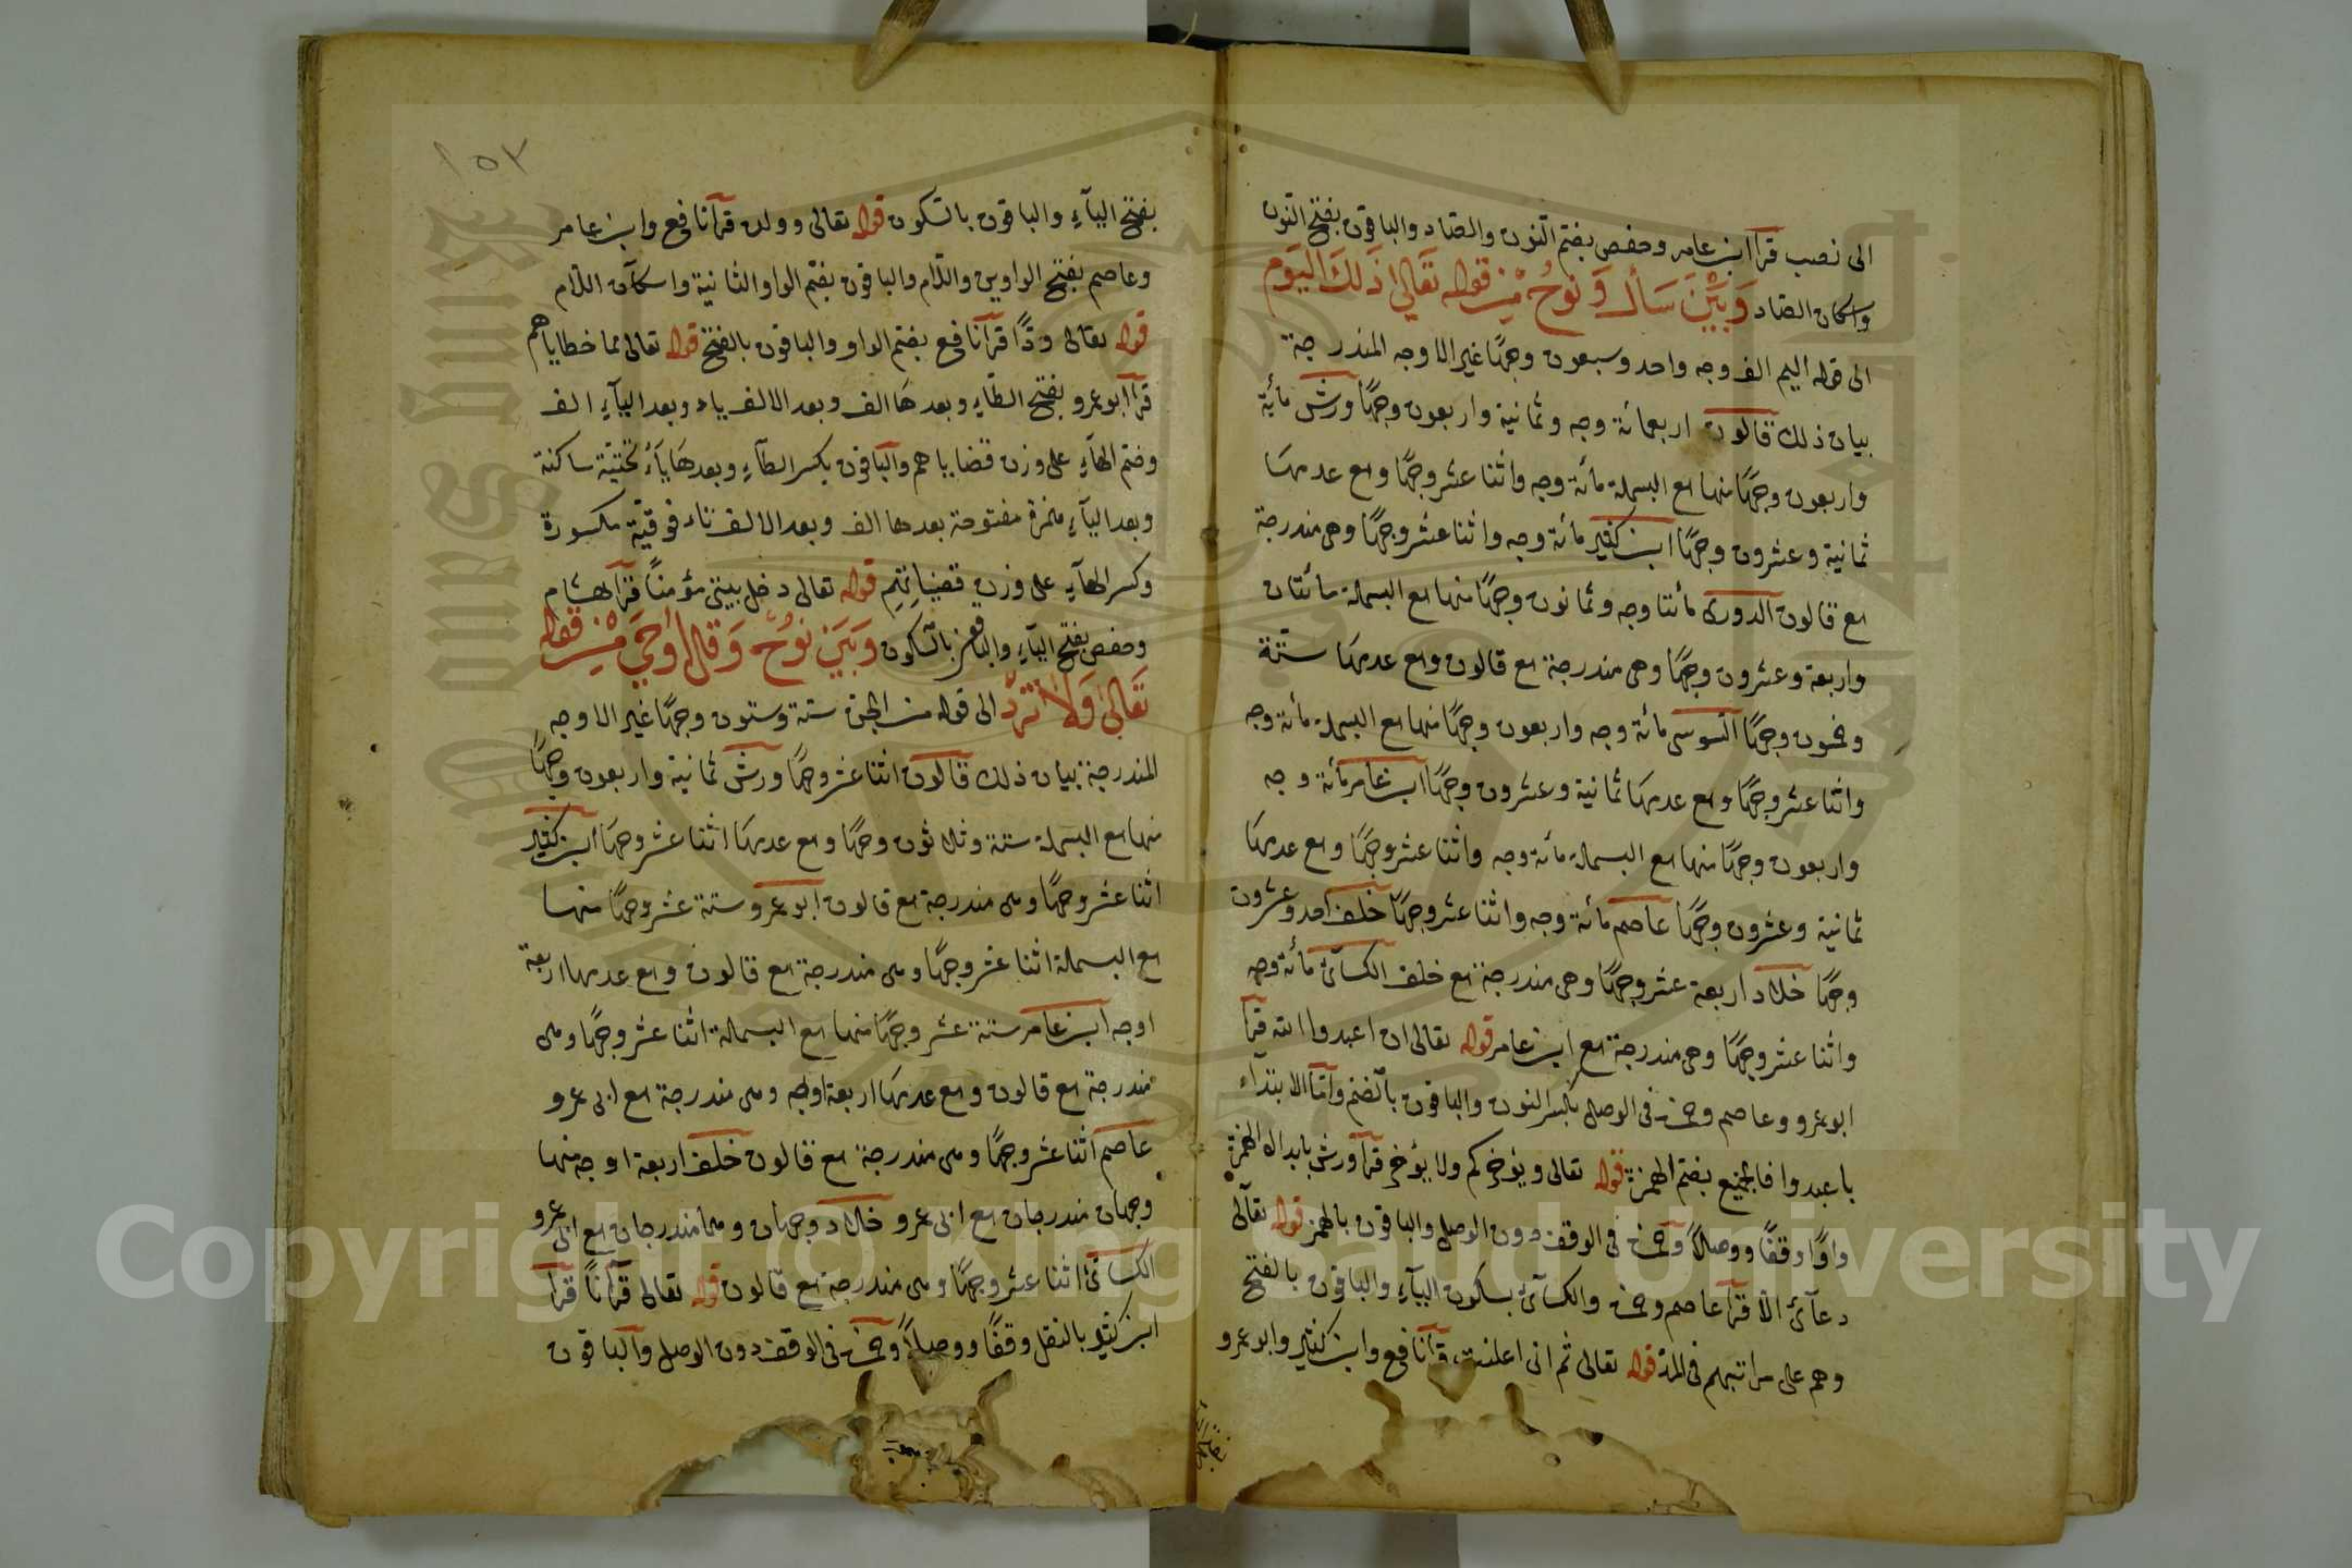 الى نصب قرأ ابن عامر وحفص بضم النون والصاد والباقون بفتح النون
واسكان الصاد وَبَيْنَ سَأَلَ وَنُوحٍ مِنْ قوله تَعَالى ذَلكَ اليَوم
الى قوله اليم الف وجه واحد وسبعون وجهًا غير الاوجه المندرجة
بيان ذلك قالون اربعمائة وجه وثمانية واربعون وجهًا ورش مائة
واربعون وجهًا منها مع البسملة مائة وجه واثنا عشر وجهًا ومع عدمها
ثمانية وعشرون وجهًا ابن كثير مائة وجه واثنا عشر وجهًا وهى مندرجة
مع قالون الدورى مائتا وجه وثمانون وجهًا منها مع البسملة مائتان
واربعة وعشرون وجهًا وهى مندرجة مع قالون ومع عدمها ستة
وخمسون وجهًا السوسى مائة وجه واربعون وجهًا منها مع البسملة مائة وجه
واثنا عشر وجهًا ومع عدمها ثمانية وعشرون وجهًا ابن عامر مائة وجه
واربعون وجهًا منها مع البسملة مائة وجه واثنا عشر وجهًا ومع عدمها
ثمانية وعشرون وجهًا عاصم مائة وجه واثنا عشر وجهًا خلف احد وعشرون
وجهًا خلاد اربعة عشر وجهًا وهى مندرجة مع خلف الكسآئ مائة وجه
واثنا عشر وجهًا وهى مندرجة مع ابن عامر قوله تعالى ان اعبدوا الله قرأ
ابو عمرو وعاصم وحمزة فى الوصل بكسر النون والباقون بالضم واما الابتداء
باعبدوا فالجميع بضم الهمزة قوله تعالى ويؤخركم ولا يؤخر قرأ ورش بابدال الهمزة
واوًا وقفًا ووصلاً وحمزة فى الوقف دون الوصل والباقون بالهمز قوله تعالى
دعآئ الا قرأ عاصم وحمزة والكسآئ بسكون اليآء والباقون بالفتح
وهم على مراتبهم فى المد قوله تعالى ثم انى اعلنت قرأ نافع وابن كثير وابو عمرو
١٥٣
بفتح اليآء والباقون بالسكون قوله تعالى وولده قرأ نافع وابن عامر
وعاصم بفتح الواوين واللام والباقون بضم الواو الثانية واسكان اللام
قوله تعالى ودًّا قرأ نافع بضم الواو والباقون بالفتح قوله تعالى مما خطاياهم
قرأ ابو عمرو بفتح الطآء وبعدها الف وبعد الالف ياء وبعد اليآء الف
وضم الهآء على وزن قضاياهم والباقون بكسر الطآء وبعدها يآء تحتية ساكنة
وبعد اليآء همزة مفتوحة بعدها الف وبعد الالف تاء فوقية مكسورة
وكسر الهآء على وزن قضياتهم قوله تعالى دخل بيتى مؤمنًا قرأ هشام
وحفص بفتح اليآء والباقون بالسكون وَبَيْنَ نُوحٍ وَقل أُوحِيَ مِنْ قوله
تَعَالى وَلاَ تَزِد الى قوله من الجن ستة وستون وجهًا غير الاوجه
المندرجة بيان ذلك قالون اثنا عشر وجهًا ورش ثمانية واربعون وجهًا
منها مع البسملة ستة وثلاثون وجهًا ومع عدمها اثنا عشر وجهًا ابن كثير
اثنا عشر وجهًا وهى مندرجة مع قالون ابو عمرو ستة عشر وجهًا منها
مع البسملة اثنا عشر وجهًا وهى مندرجة مع قالون ومع عدمها اربعة
اوجه ابن عامر ستة عشر وجهًا منها مع البسملة اثنا عشر وجهًا وهى
مندرجة مع قالون ومع عدمها اربعة اوجه وهى مندرجة مع ابى عمرو
عاصم اثنا عشر وجهًا وهى مندرجة مع قالون خلف اربعة اوجه منها
وجهان مندرجان مع ابى عمرو خلاد وجهان وهما مندرجان مع ابى عمرو
الكسآئ اثنا عشر وجهًا وهى مندرجة مع قالون قوله تعالى قرآنًا قرأ
ابن كثير بالنقل وقفًا ووصلاً وحمزة فى الوقف دون الوصل والباقون
Copyright © King Saud University